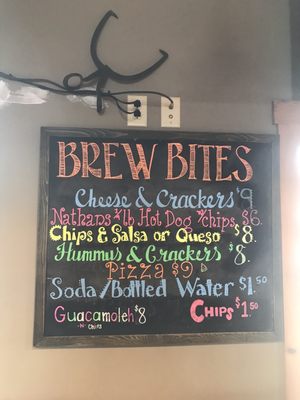 BREW BITES
Cheese & Crackers $9
Nathans 1/4 lb Hot Dog w/chips $6.
Chips & Salsa or Queso $8.
Hummus & Crackers $8.
Pizza $9
Soda/Bottled Water $1.50
Guacamoleh $8
-n- Chips
CHIPS $1.50